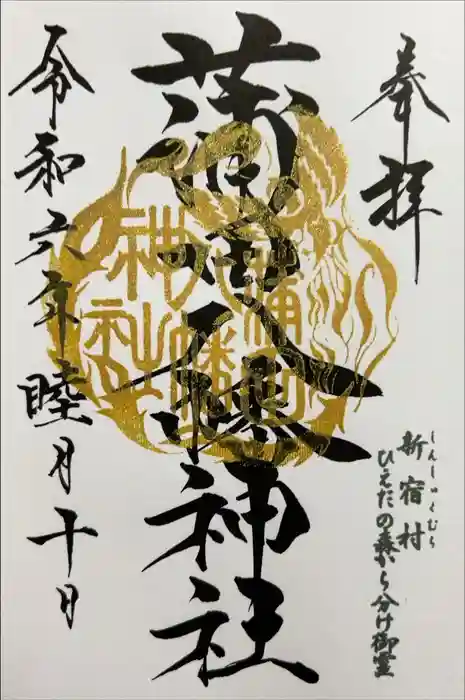 奉拝
しんしゅくむら
新宿村
ひえだの森から分け御霊
蒲田八幡神社
蒲田
八幡
神社
令和六年睦月十日